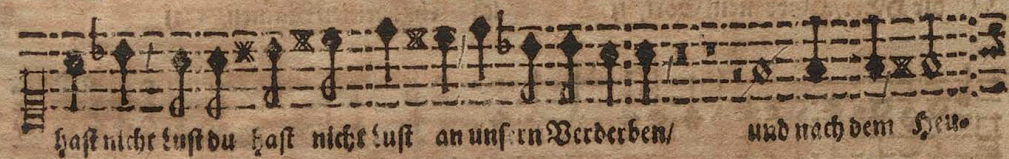 haſt nicht Luſt du haſt nicht Luſt an unſern Verderben/ und nach dem Heu⸗